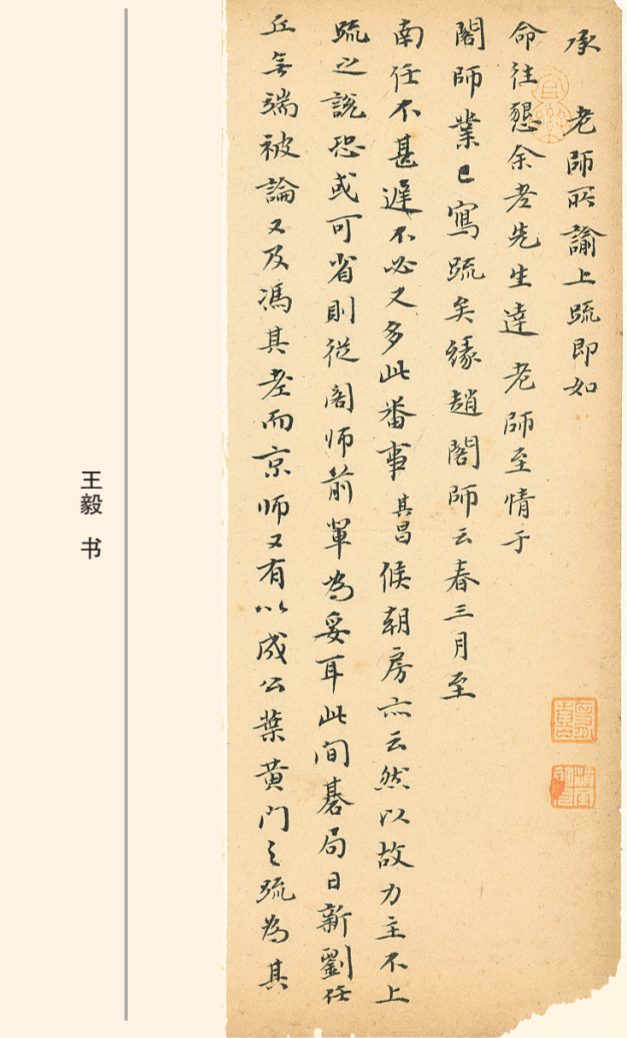 承 老師所諭上疏即如
命往懇余老先生達 老師至情于
閣師業已寫疏矣緣趙閣師云春三月至
南任不甚遲不必又多此番事其昌候朝房亦云然以故力主不上
疏之說恐或可省則從閣师前單為妥耳此間碁局日新劉任
丘無端被論又及馮其老而京师又有以成公葉黄门之疏為其
王毅 书